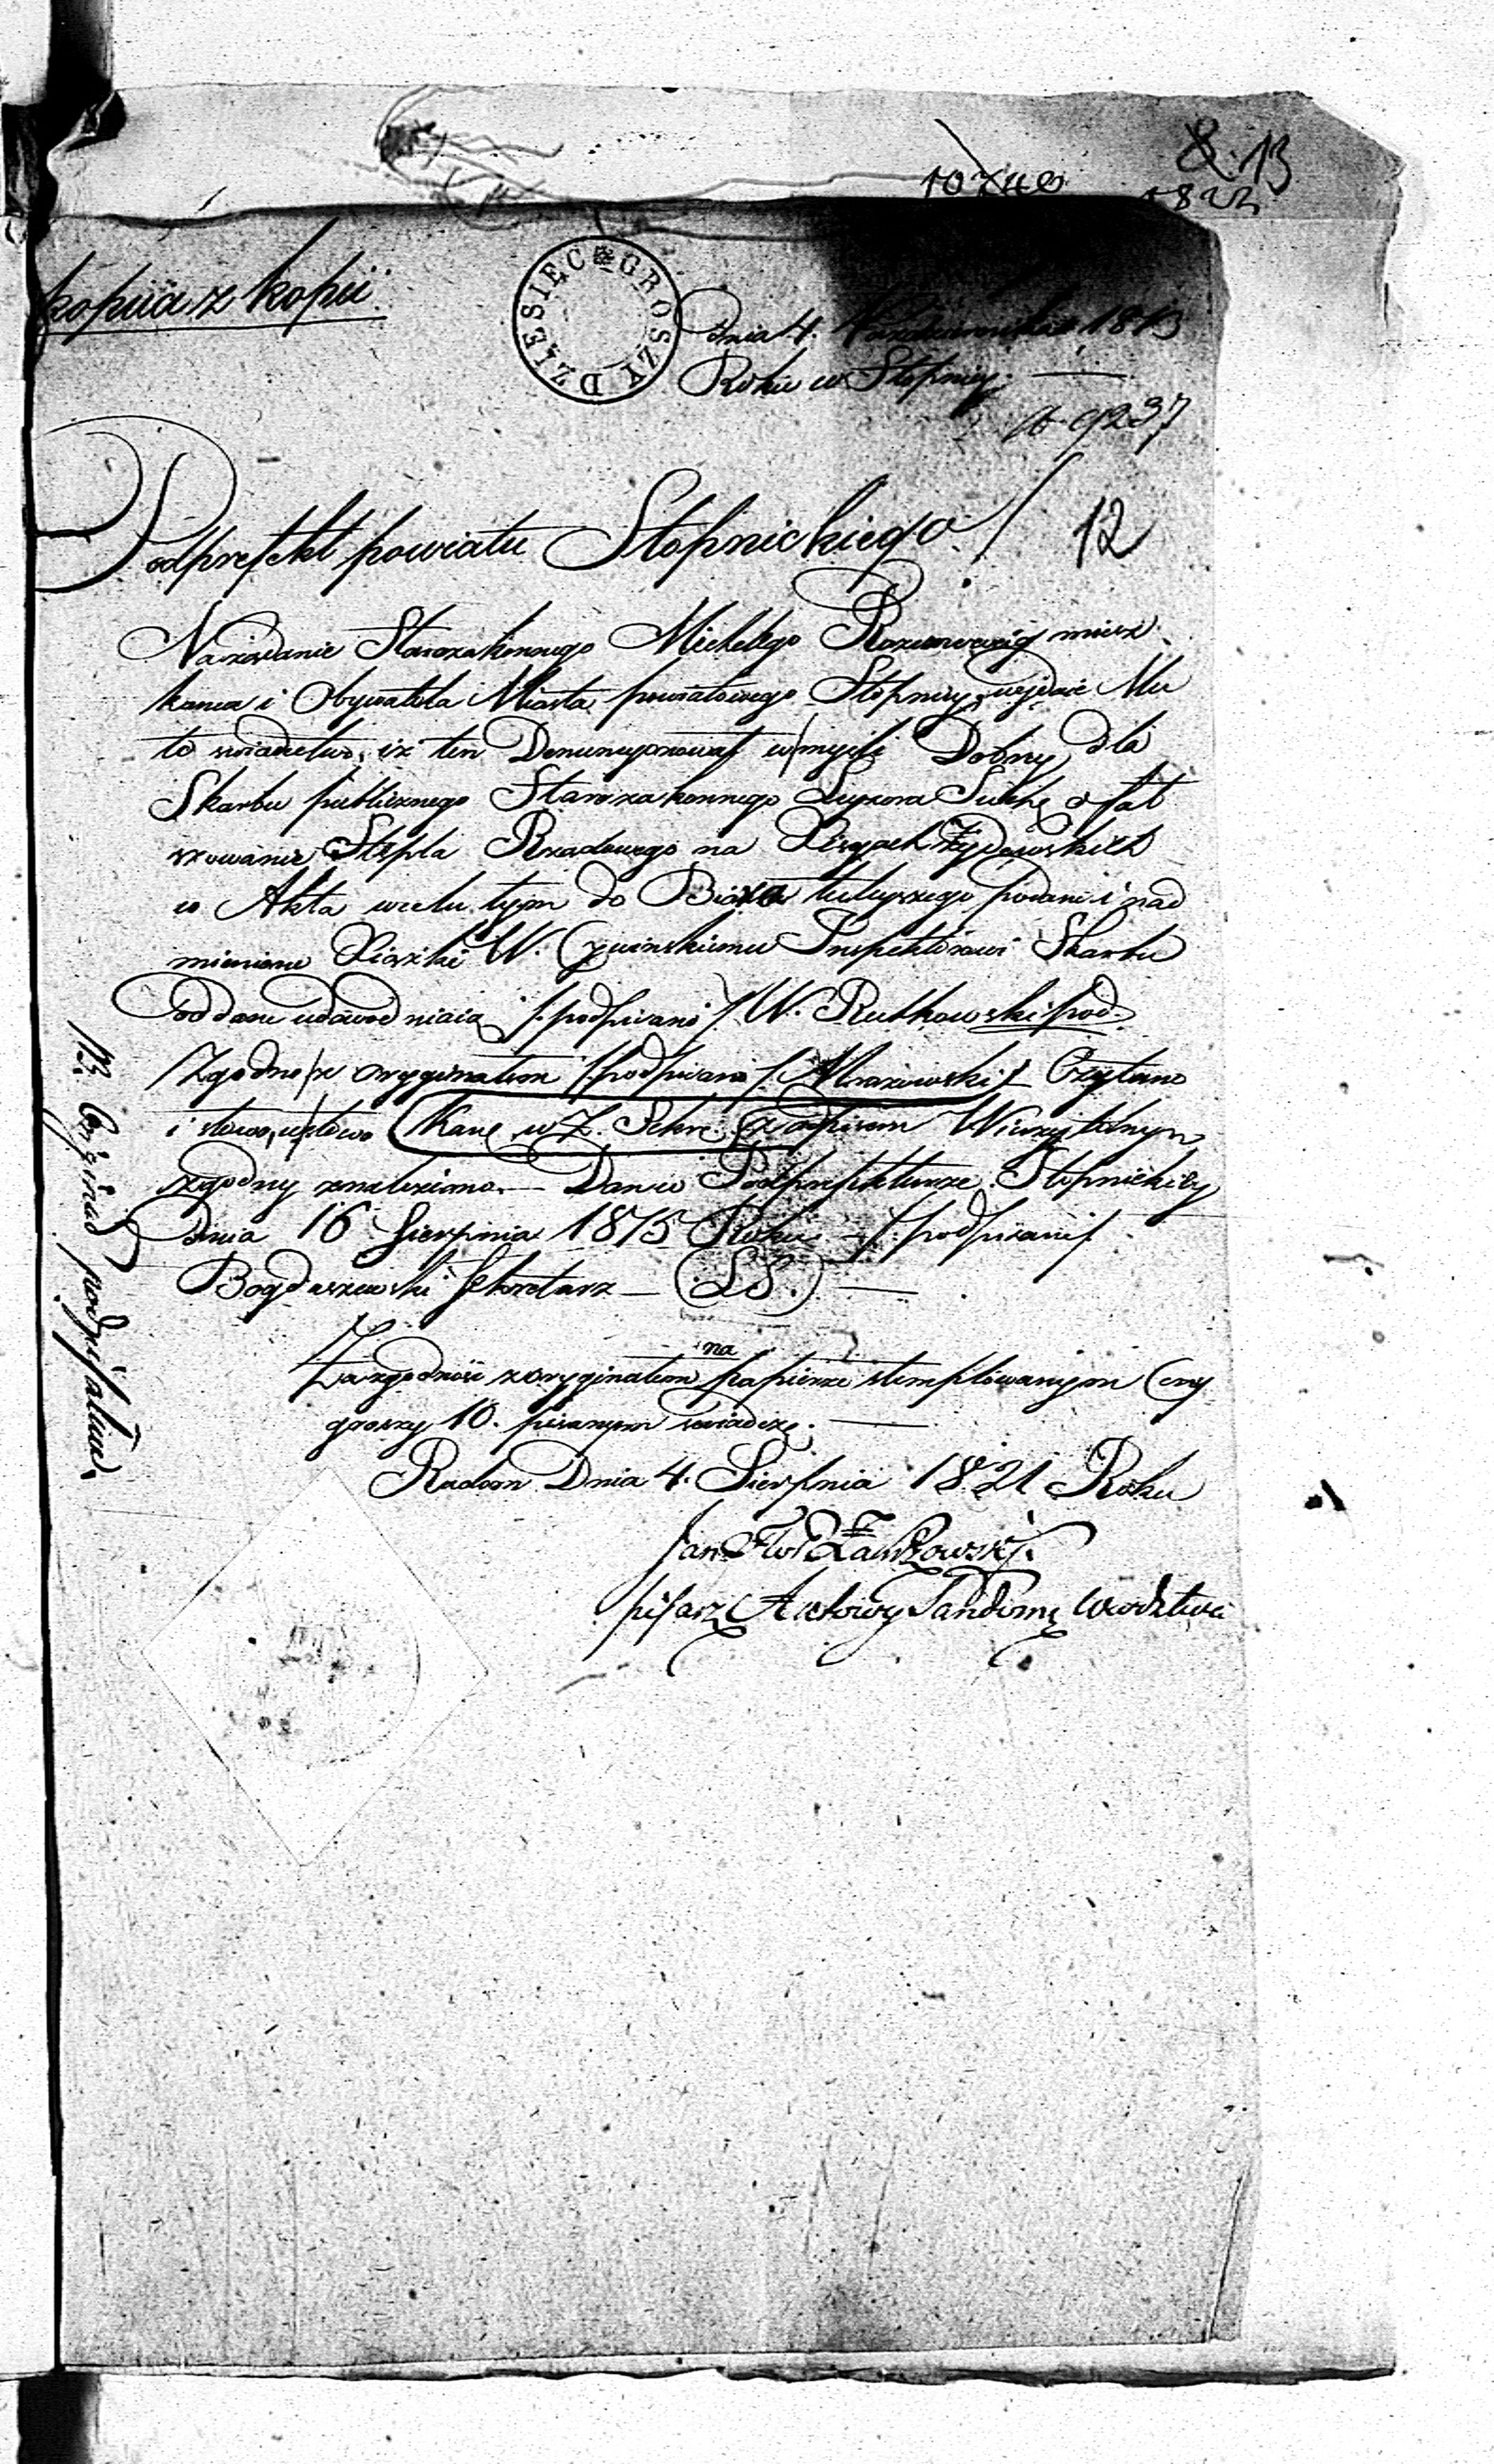 10740
8. 13
1822
kopiia z kopii.
DZIESIĘC GROSZY
Dnia 4. Października 1813
Roku w Stopnicy.
N. 9237
12
Podprefekt powiatu Stopnickiego
Na żądanie Starozakonnego Michela miesz
kanca i Obywatela Miasta powiatowego Stopnicy, wydaie Mu
to swiadectwo, iż ten Denuncyonował w myśli Dobry dla
Skarbu publicznego Starozakonnego o fał
szowanie Stępla Rządowego na Żydowskich
w Akta wielu tym do Biora tuteyszego podane i nad
mienione Xiążki W. Inspektorowi Skarbu
oddane udowodniaią /: podpisano :/ W. Rutkowski pod.
Zgodno z oryginałem /: podpisano :/ Mrazowski :/ Czytano
i słowo w słowo Kanc w Z. Sekre. z odpisem Wierzytelnym
zgodny znaleziono. — Dan w Podprefekturze Stopnickiey
Dnia 16 Sierpnia 1815 Roku — /: podpisani :/
Bogdaszewski Sekretarz — (LS.) —
Za zgodność z oryginałem na papierze stemplowanym Ceny
groszy 10. pisanym swiadczę. —
Radom Dnia 4. Sierpnia 1821 Roku
Jan
pisarz Aktowy Sandomę Wodztwa
podpisałem